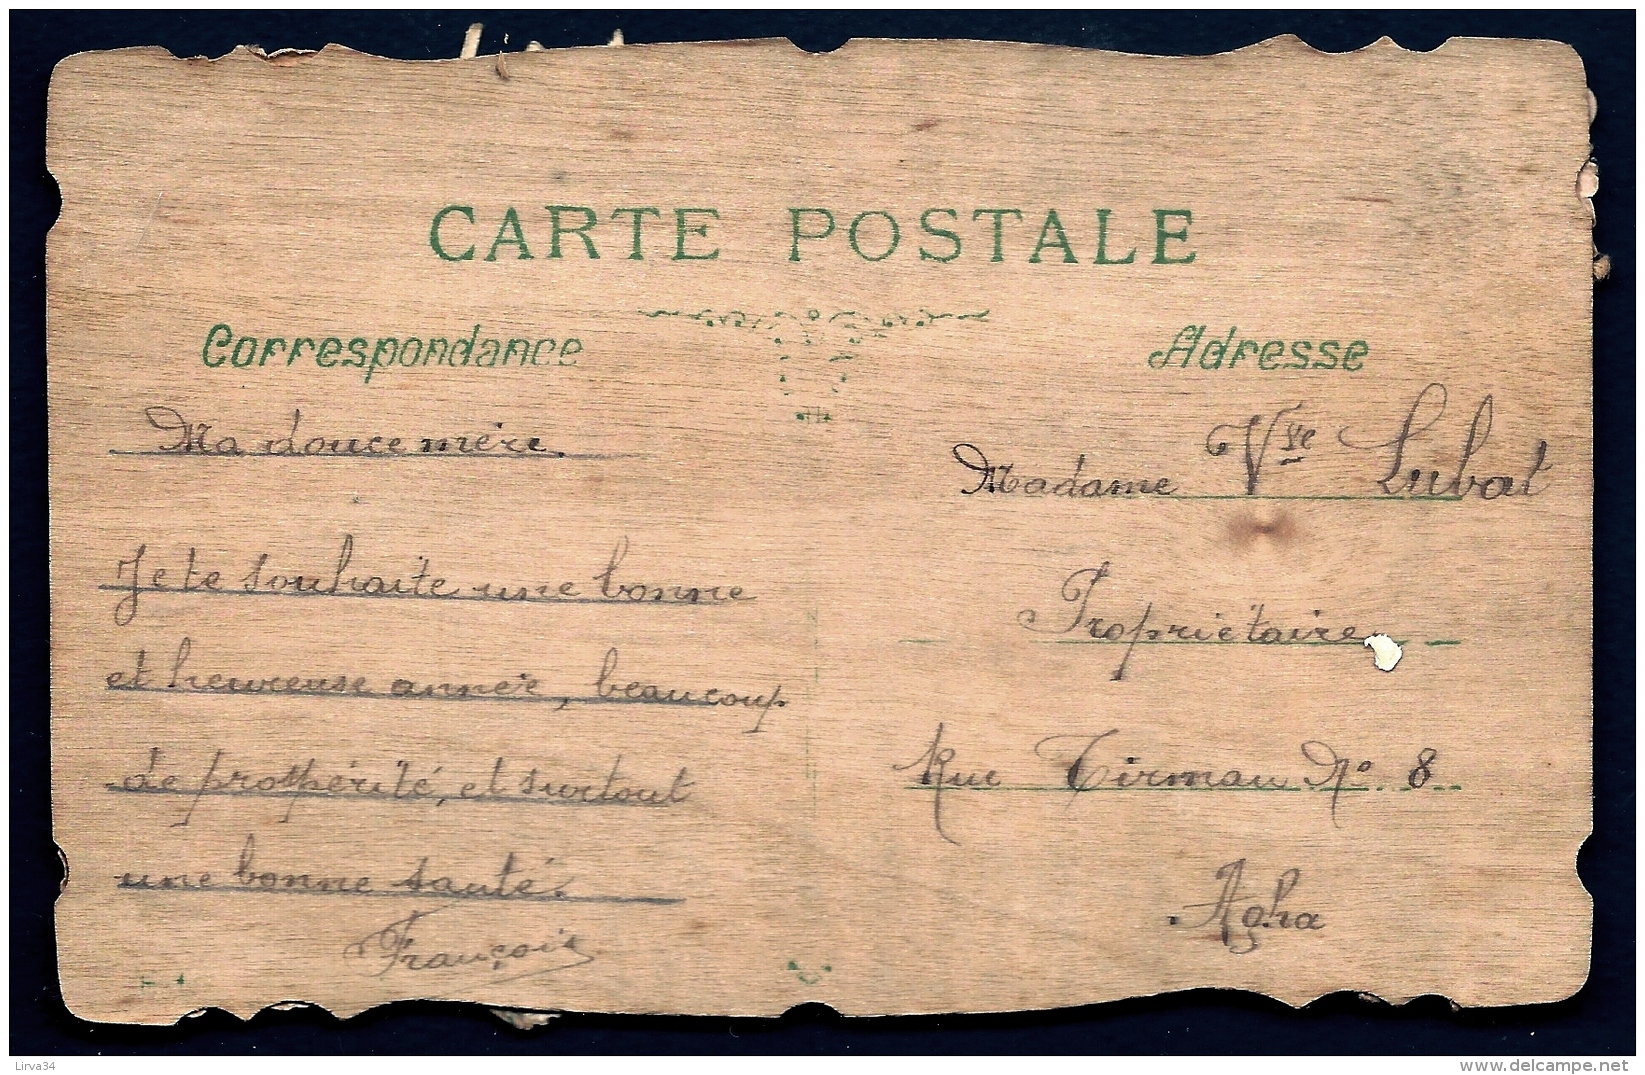 CARTE POSTALE
Correspondance
Adresse
Ma douce mère
Je te souhaite une bonne
et heureuse année, beaucoup
de prospérité, et surtout
une bonne santé.
François
Madame Vve Lubat
Propriétaire
Rue Tirman No 8
Agha
Lirva34
www.delcampe.net